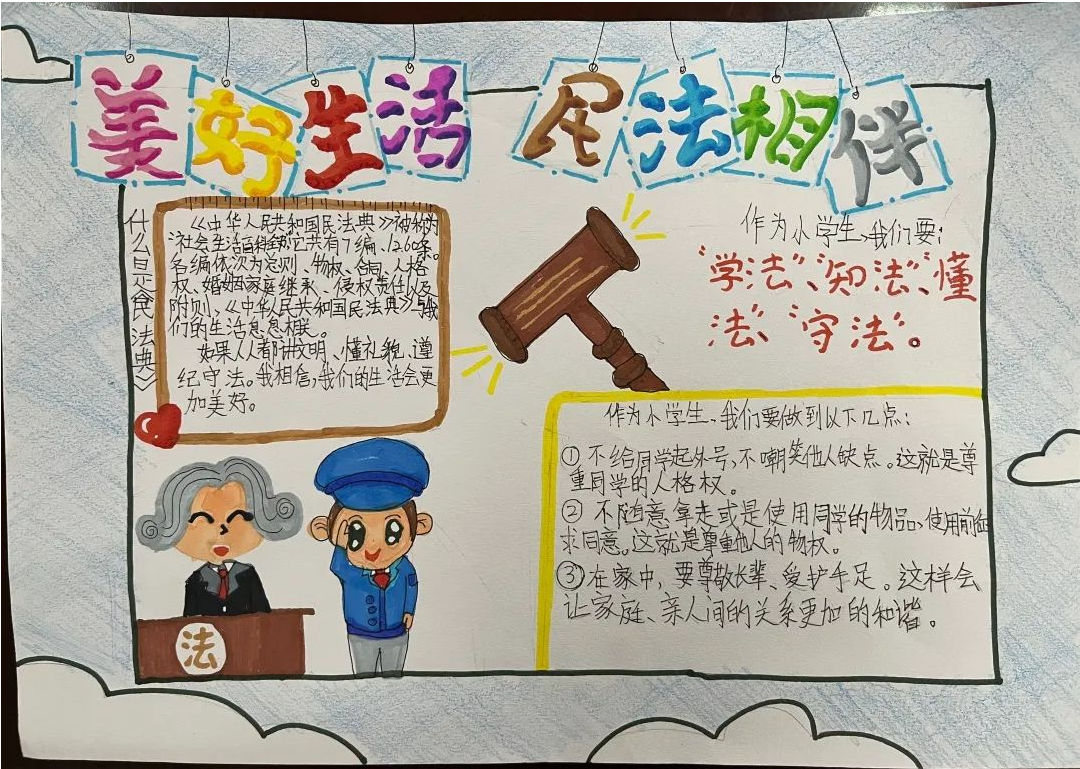 美好生活 民法相伴
什么是《民法典》
《中华人民共和国民法典》被称为
"社会生活百科全书",它共有7编、1260条。
各编依次为总则、物权、合同、人格
权、婚姻家庭继承、侵权责任以及
附则,《中华人民共和国民法典》与我
们的生活息息相关。
如果人人都讲文明、懂礼貌、遵
纪守法。我相信,我们的生活会更
加美好。
法
作为小学生,我们要:
"学法"、"知法"、懂
法"、"守法"。
作为小学生,我们要做到以下几点:
①不给同学起外号,不嘲笑他人缺点。这就是尊
重同学的人格权。
②不随意拿走或是使用同学的物品,使用前征
求同意。这就是尊重他人的物权。
③在家中,要尊敬长辈、爱护手足。这样会
让家庭、亲人间的关系更加的和谐。